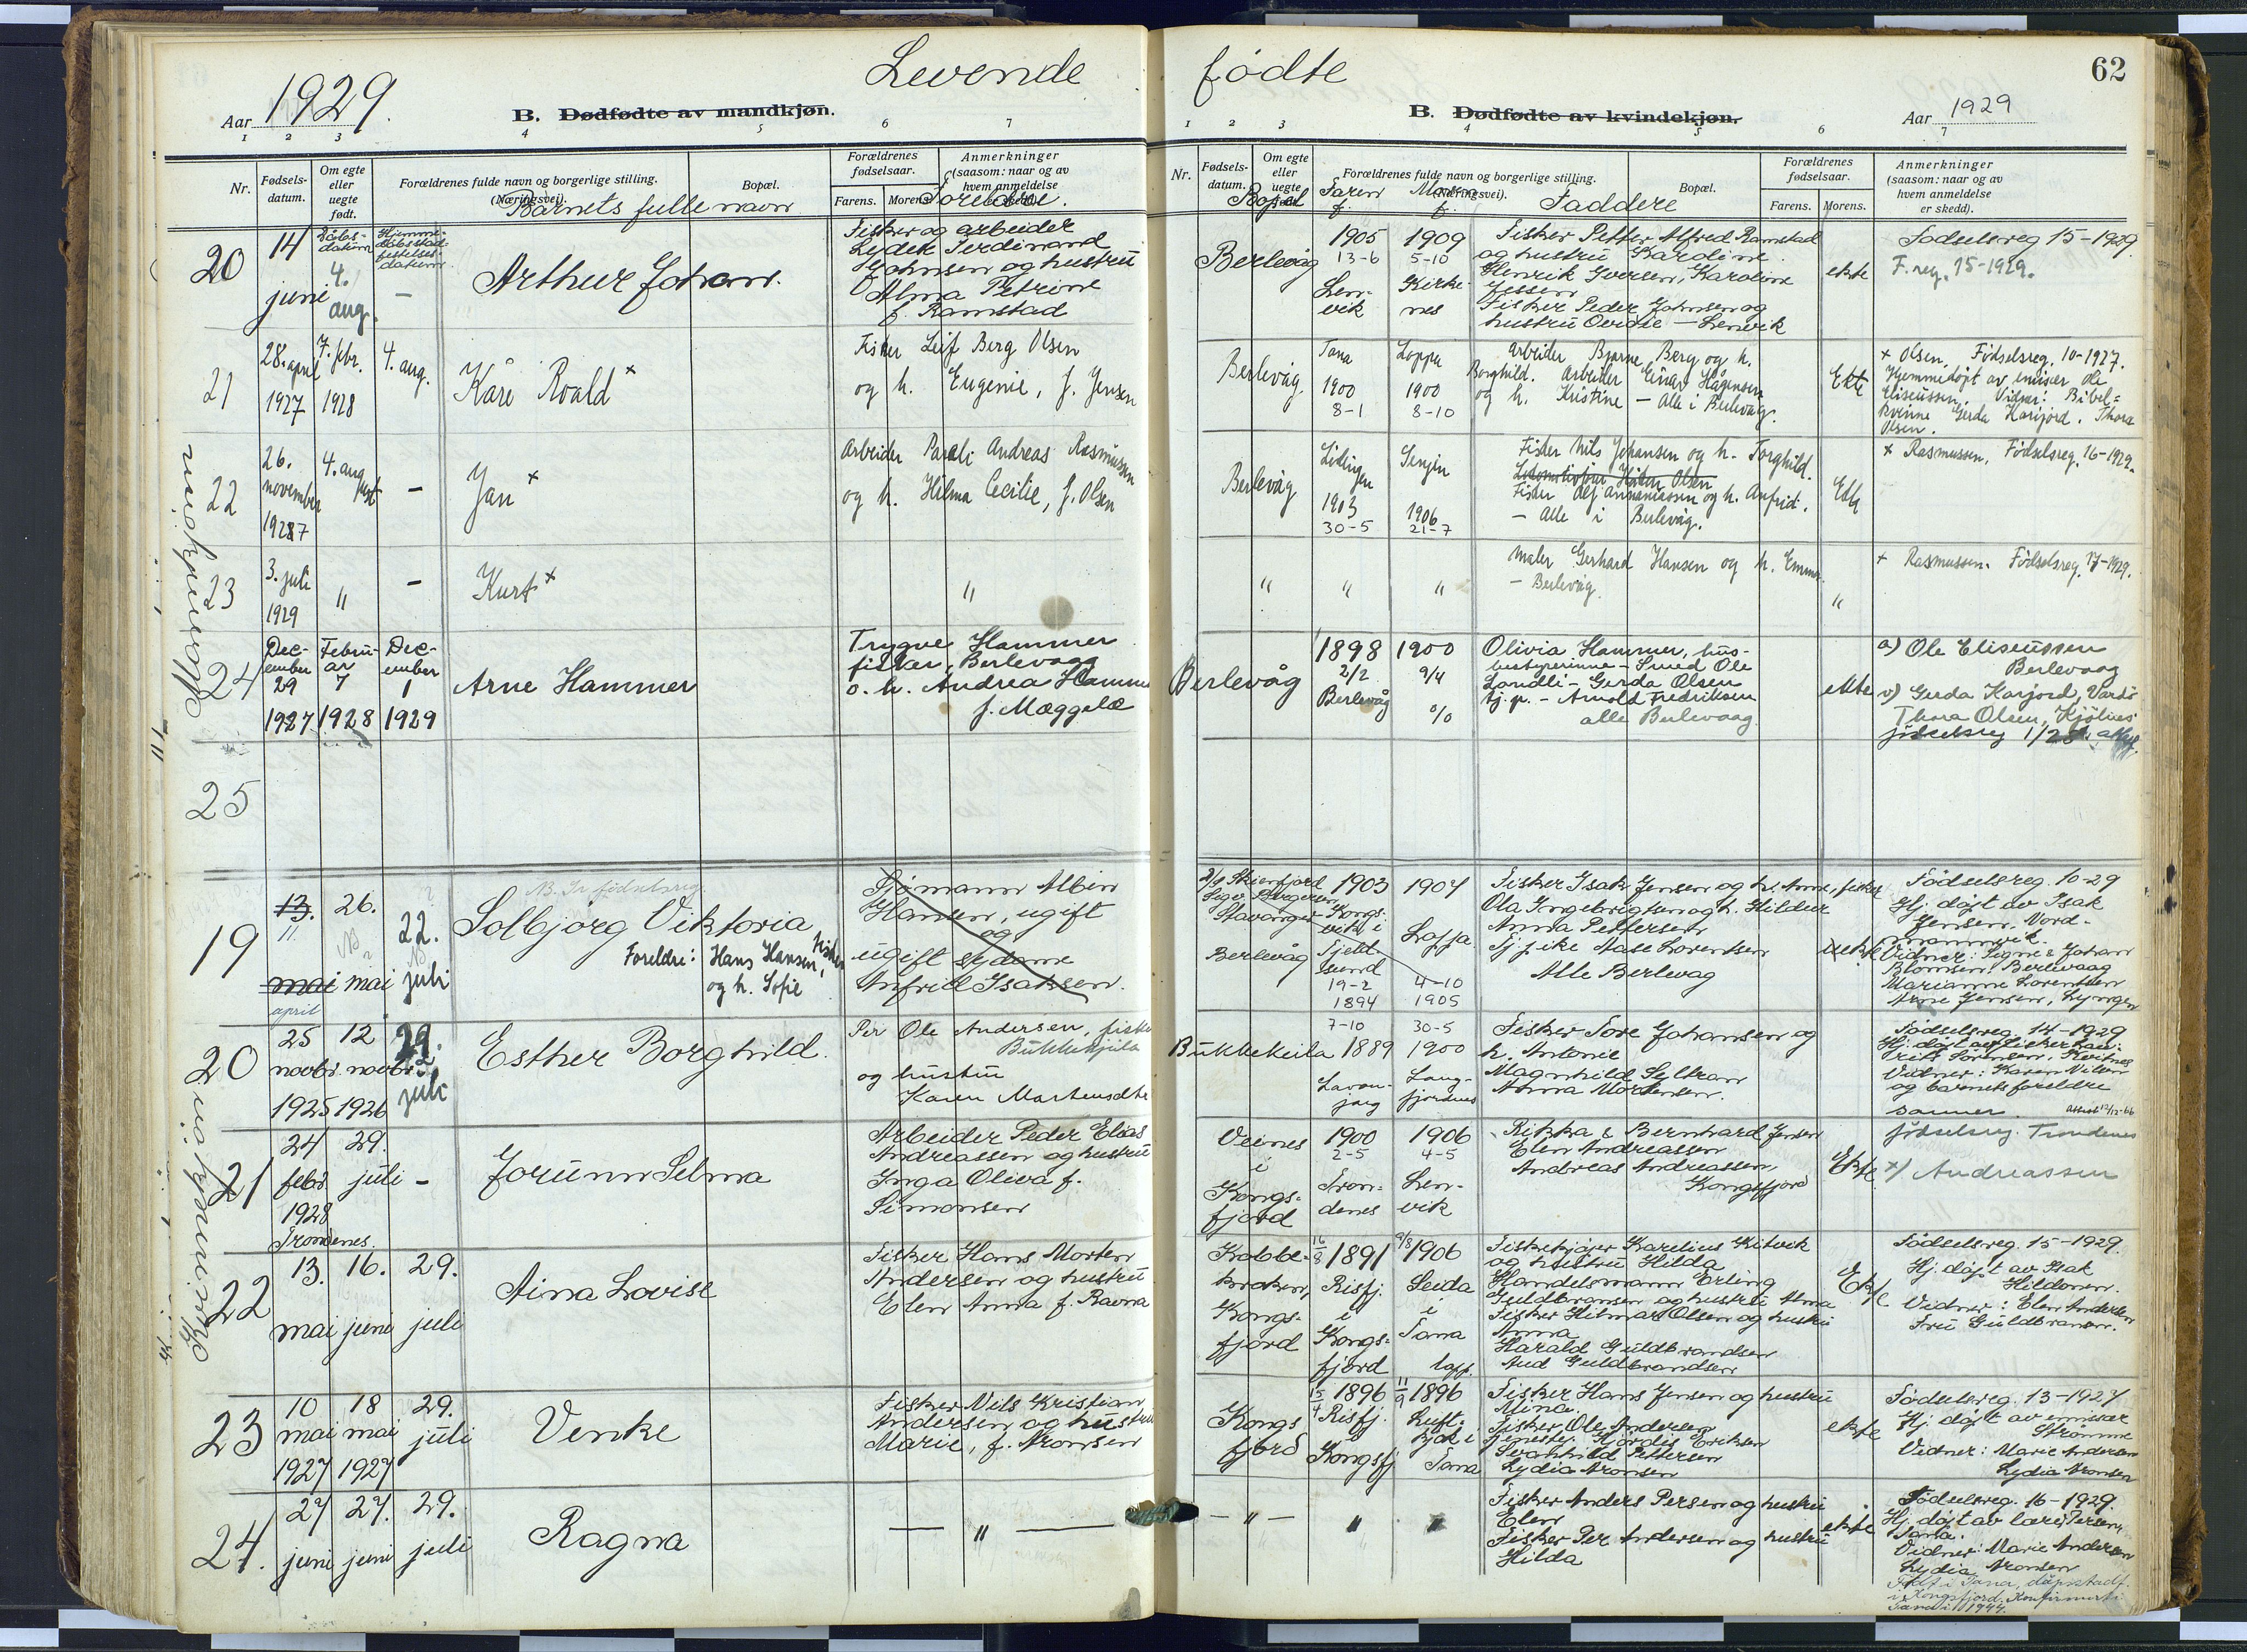 Levende fødte
62
Aar 1929.
B. Dødfødte av mandkjøn.
1 2 3 4 5 6 7
Nr.
Fødsels-
datum.
Om egte
eller
uegte
født.
Forældrenes fulde navn og borgerlige stilling.
(Næringsvei).
Barnets fulle navn
Bopæl.
Forældrenes
fødselsaar.
Farens. Morens.
Anmerkninger
(saasom: naar og av
hvem anmeldelse
Foreldre.
B. Dødfødte av kvindekjøn.
Aar 1929
1 2 3 4 5 6 7
Nr.
Fødsels-
datum.
Om egte
eller
uegte
Bopæl
Faren
f.
Moren
f.
Forældrenes fulde navn og borgerlige stilling.
(Næringsvei).
Faddere
Bopæl.
Forældrenes
fødselsaar.
Farens. Morens.
Anmerkninger
(saasom: naar og av
hvem anmeldelse
er skedd).
Mannkjønn
20
14
juni
Dåbs-
datum
4.
aug.
Hjemme-
dåbsstad-
festelses-
datum
—
Arthur Johan.
Fisker og arbeider
Lydek Ferdinand
Johnsen og hustru
Alma Petrine
f. Ramstad
Berlevåg
1905
13-6
Len-
vik
1909
5-10
Kirke-
nes
Fisker Petter Alfred Ramstad
og hustru Karoline.
Henrik Iversen, Karoline
Jessen
Fisker Peder Johnsen og
hustru Ovidie — Lenvik
ekte
Fødselsreg 15-1929.
F.reg. 15-1929.
21
28. april
1927
7. febr.
1928
4. aug.
Kåre Roald ×
Fisker Leif Berg Olsen
og h. Eugenie, f. Jensen
Berlevåg.
Tana
1900
8-1
Loppa
1900
8-10
Arbeider Bjarne Berg og h.
Borghild. Arbeider Einar Hågensen
og h. Kristine — Alle i Berlevåg.
Ekte
× Olsen. Fødselsreg. 10-1927.
Hjemmedøpt av emisær Ole
Eliseussen. Vidner: Bibel=
kvinne Gerda Karijord. Thora
Olsen.
22
26.
november
19287
4. august
—
Jan ×
Arbeider Pareli Andreas Rasmussen
og h. Hilma Cecilie, f. Olsen
Berlevåg
Lødingen
1903
30-5
Senjen
1906
21-7
Fisker Nils Johansen og h. Torghild.
Fisker Alf Annaniassen og h. Anfrid.
— Alle i Berlevåg.
Ekte
× Rasmussen. Fødselsreg. 16-1929.
23
3. juli
1929
"
—
Kurt ×
"
" " "
Maler Gerhard Hansen og h. Emma
— Berlevåg.
"
× Rasmussen. Fødselsreg. 17-1929.
24
Dec-
ember
29
1927
Febru-
ar
7
1928
Dec-
ember
1
1929
Arne Hammer
Trygve Hammer
fisker, Berlevaag
o. h. Andrea Hammer
f. Mæggelæ
Berlevåg
1898
2/2
Berlevåg
1900
9/4
%
Olivia Hammer, hus-
bestyrerinne — Smed Ole
Landli — Gerda Olsen
tj. p. — Arnold Fredriksen
alle Berlevaag
ekte
a) Ole Eliseussen
Berlevaag
v) Gerda Karjord, Vardø
Thora Olsen, Kjølnes
fødselsreg 1/28.
25
Kvinnekjønn
19
13.
11
mai
april
26.
mai
22.
juli
N.B. Se fødselsreg.
Solbjørg Viktoria
Foreldre: Hans Hansen, fisker
og h. Sofie
Sjømann Albin
Hansen, ugift
og
ugift sydame
Anfrill Isaksen.
Berlevåg
1903
Kongs-
vik i
Tjeld-
sund
19-2
1894
1907
Loppa.
4-10
1905
Fisker Isak Jensen og h. Anna, fisker
Ola Ingebrigtsen og h. Hildur
Anna Pettersen
Tj. pike Aase Lorentsen
Alle Berlevåg
uekte
Fødselsreg. 10-29
Hj. døpt av Isak
Jensen, Nord-
mannvik.
Vidner: Signe & Johan
Blomsen, Berlevaag
Marianne Lorentsen
Arne Jensen, Lyngen
20
25
novbr.
1925
12
novbr.
1926
29.
juli
Esther Borghild.
Per Ole Andersen, fisker
Bukkekjeila
og hustru
Karen Martensdtr.
Bukkekeila
7-10
1889
Lavan-
jarg
30-5
1900
Lang-
fjordnes
Fisker Tore Johansen og
h. Antonie
Magnhild Seltran
Anna Mortensen.
Fødselsreg. 14-1929
Vidner: Karen Nilsen
og barnets foreldre
sammen.
21
24
febr.
1928
Trondenes.
29.
juli
—
Jorunn Selma
Arbeider Peder Elias
Andreassen og hustru
Inga Oliva f.
Simonsen
Veines
i
Kongs-
fjord
1900
2-5
Tron-
denes
1906
4-5
Len-
vik
Rikka & Bernhard Jensen
Elen Andreassen
Andreas Andreassen,
Kongsfjord
Ekte
fødselsreg. Trondenes
×) Andreassen
22
13.
mai
16.
juni
29.
juli
Aina Lovise
Fisker Hans Morten
Andersen og hustru
Elen Anna f. Ravna
Kobbe-
kroken,
Kongs-
fjord
16/8 1891
Risfj.
i
Kongs-
fjord
9/8 1906
Seida
i
Tana
lapp.
Fiskekjøper Karelius Kitvik
og hustru Hilda
Handelsmann Erling
Guldbransen og hustru Alma
Fisker Hilmar Olsen og hustru
Anna
Harald Guldbrandsen
Aud Guldbrandsen
Ekte
Fødselsreg. 15-1929.
Hj. døpt av Isak
Hildonen.
Vidner: Elen Andersen
Fru Guldbransen.
23
10
mai
1927
18
mai
1927
29.
juli
Venke
Fisker Nils Kristian
Andersen og hustru
Marie, f. Aronsen
Kongs
fjord
15/4 1896
Risfj.
i
Kongsfj
11/9 1896
Luft-
jok i
Tana
Fisker Hans Jensen og hustru
Mina.
Fisker Ole Andersen
tjeneste. Hjørdis Eriksen
Svanhild Pettersen
Lydia Aronsen
ekte
Fødselsreg. 13-1927
Hj. døpt av emisær
Strømme
Vidner: Marie Andersen
Lydia Aronsen
24.
27
juni
27.
juni
29.
juli
Ragna
— " —
— " — " "
Fisker Anders Persen og hustru
Elen
Fisker Per Andersen og hustru
Hilda
ekte
Fødselsreg. 16-1929.
Hj. døpt av lærer Persen,
Tana.
Vidner: Marie Andersen
Lydia Aronsen
Født i Tana, dåpsstadf.
i Kongsfjord. Konfirmert i
Tana i 1944.